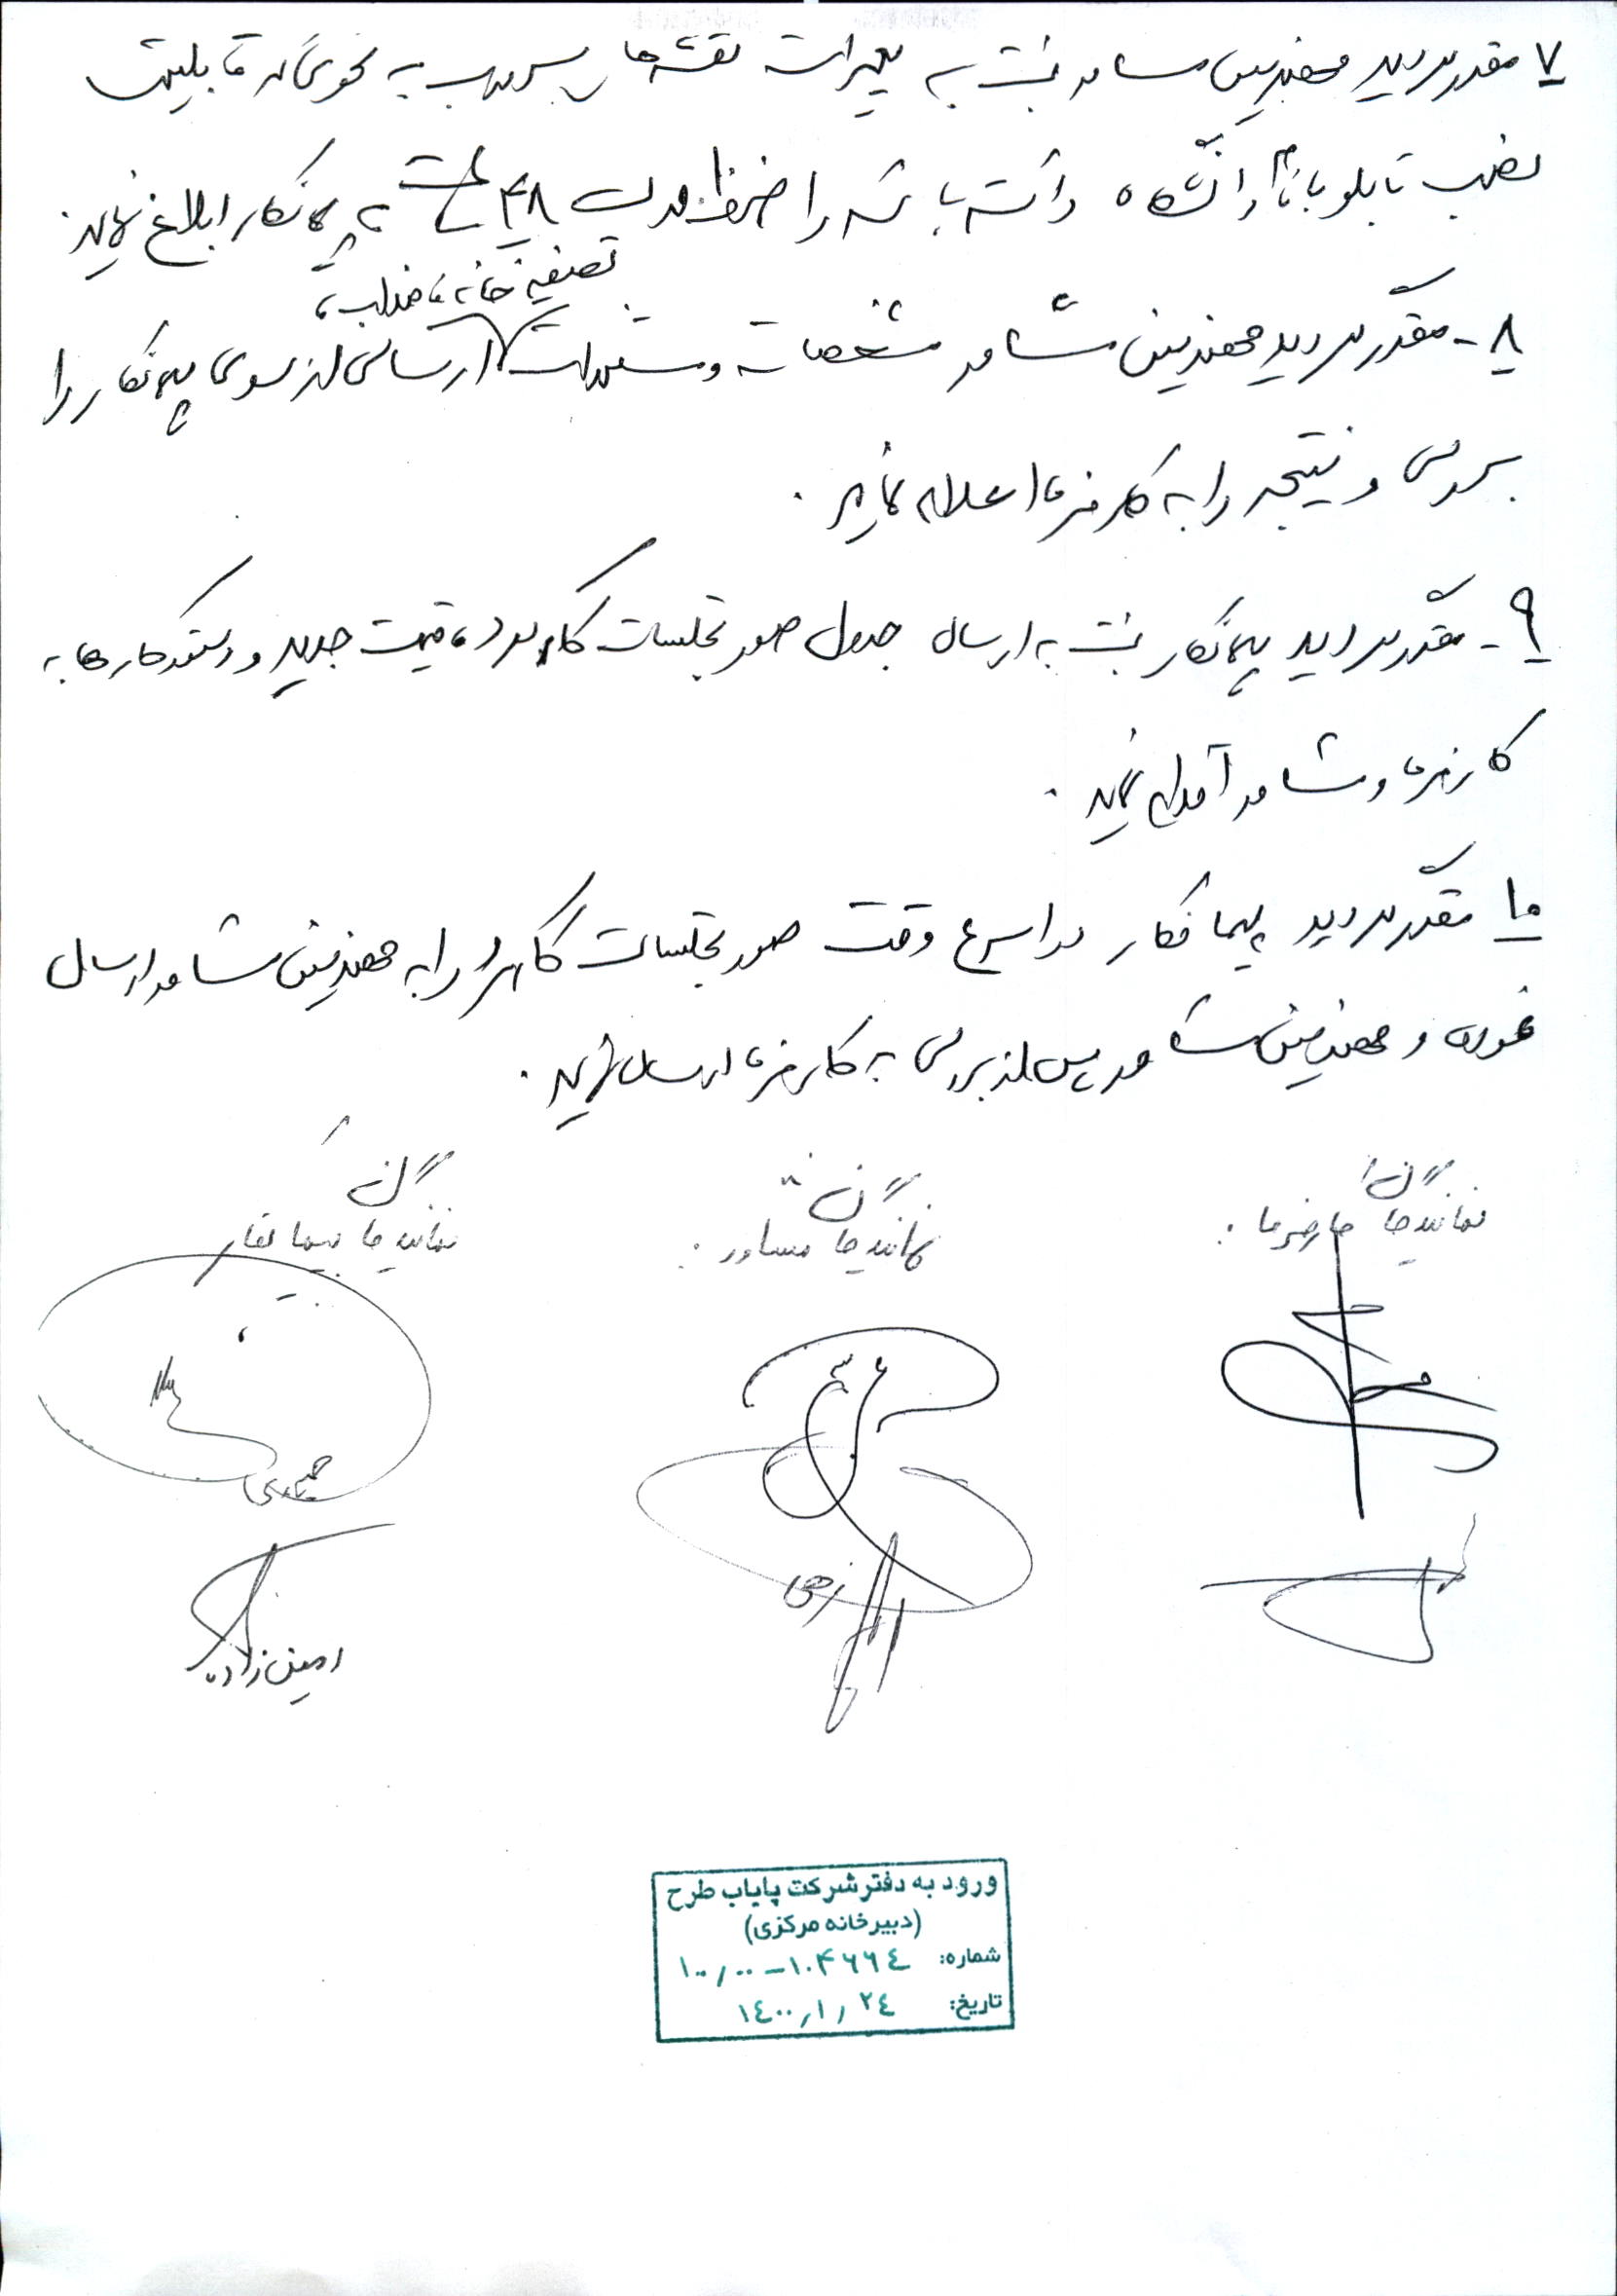 ۷ مقرر گردید مهندسین مشاور نسبت به تغییرات نقشه‌های سردرب به نحوی که قابلیت
نصب تابلو با نام دانشگاه داشته باشد را ظرف مدت ۴۸ ساعت به پیمانکار ابلاغ نماید.
تصفیه خانه فاضلاب
۸ - مقرر گردید مهندسین مشاور مشخصات و مستندات ارسالی از سوی پیمانکار را
بررسی و نتیجه را به کارفرما اعلام نماید.
۹ - مقرر گردید پیمانکار نسبت به ارسال جدول صورتجلسات کارکرد، قیمت جدید و دستورکارها به
کارفرما و مشاور اقدام نماید.
۱۰ مقرر گردید پیمانکار در اسرع وقت صورتجلسات کارکرد را به مهندسین مشاور ارسال
نموده و مهندسین مشاور پس از بررسی به کارفرما ارسال نماید.
نمایندگان کارفرما :
نمایندگان مشاور :
نمایندگان پیمانکار
امین زاده
ورود به دفتر شرکت پایاب طرح
(دبیرخانه مرکزی)
شماره: ۱۰۰/۰۰-۱۰۴۶۶۴
تاریخ: ۱۴۰۰/۱/۲۴